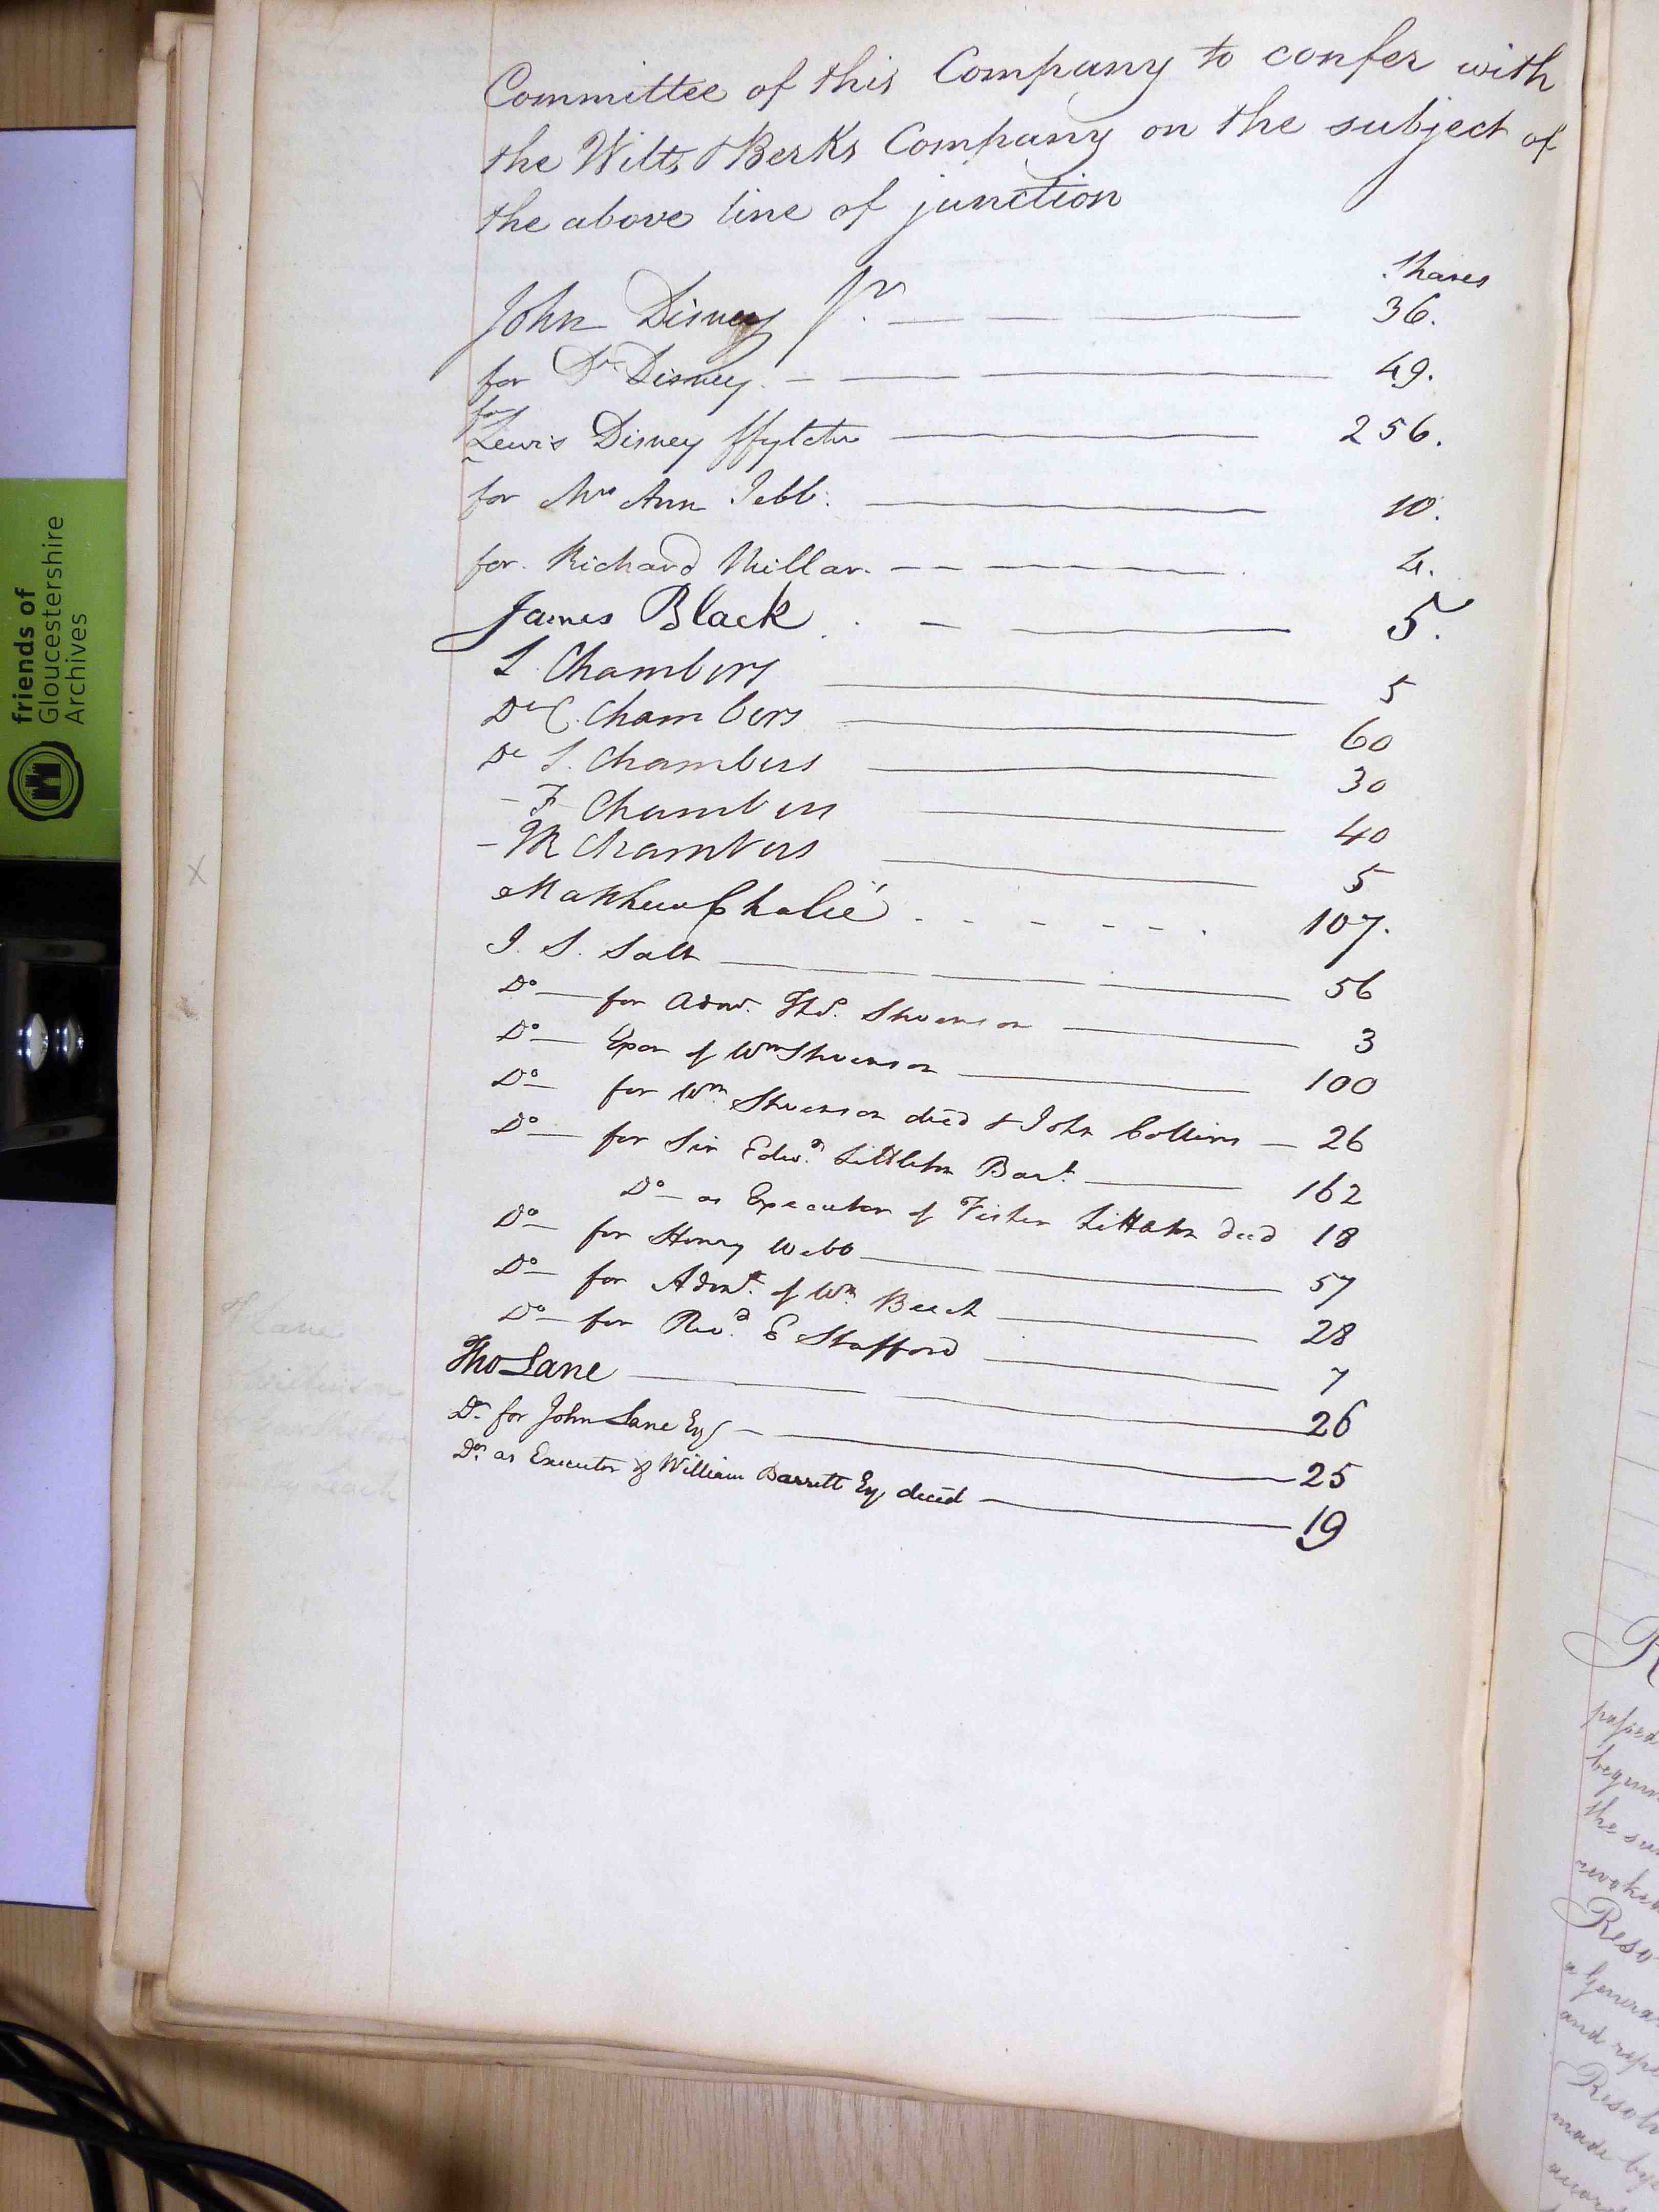 Committee of this Company to confer with
the Wilts & Berks Company on the subject of
the above line of junction
Shares
John Disney Jr. 36.
for Dr Disney. 49.
for
Lewis Disney ffytche 256.
for Mrs Ann Jebb. 10.
for Richard Millar. 4.
James Black 5.
S. Chambers 5
Do C. Chambers 60
Do S. Chambers 30
- F Chambers 40
- R Chambers 5
Matthew Chalié 107.
J. S. Salt 56
Do for Admr. Shvenson 3
Do Exor of Wm Shvenson 100
Do for Wm Shvenson decd & John Collins 26
Do for Sir Edwd Littleton Bart 162
Do as Executor of Fisher Littleton decd 18
Do for Henry Webb 57
Do for Admr. of Wm Beech 28
Do for Revd E Stafford 7
Tho Lane 26
Do for John Lane Esq 25
Do as Executor of William Barrett Esq decd 19
friends of
Gloucestershire
Archives
x
T Lane
Wilkinson
Leach
R
passed
beginn
the su
revoked
Reso
a General
and rep
Resol
made by